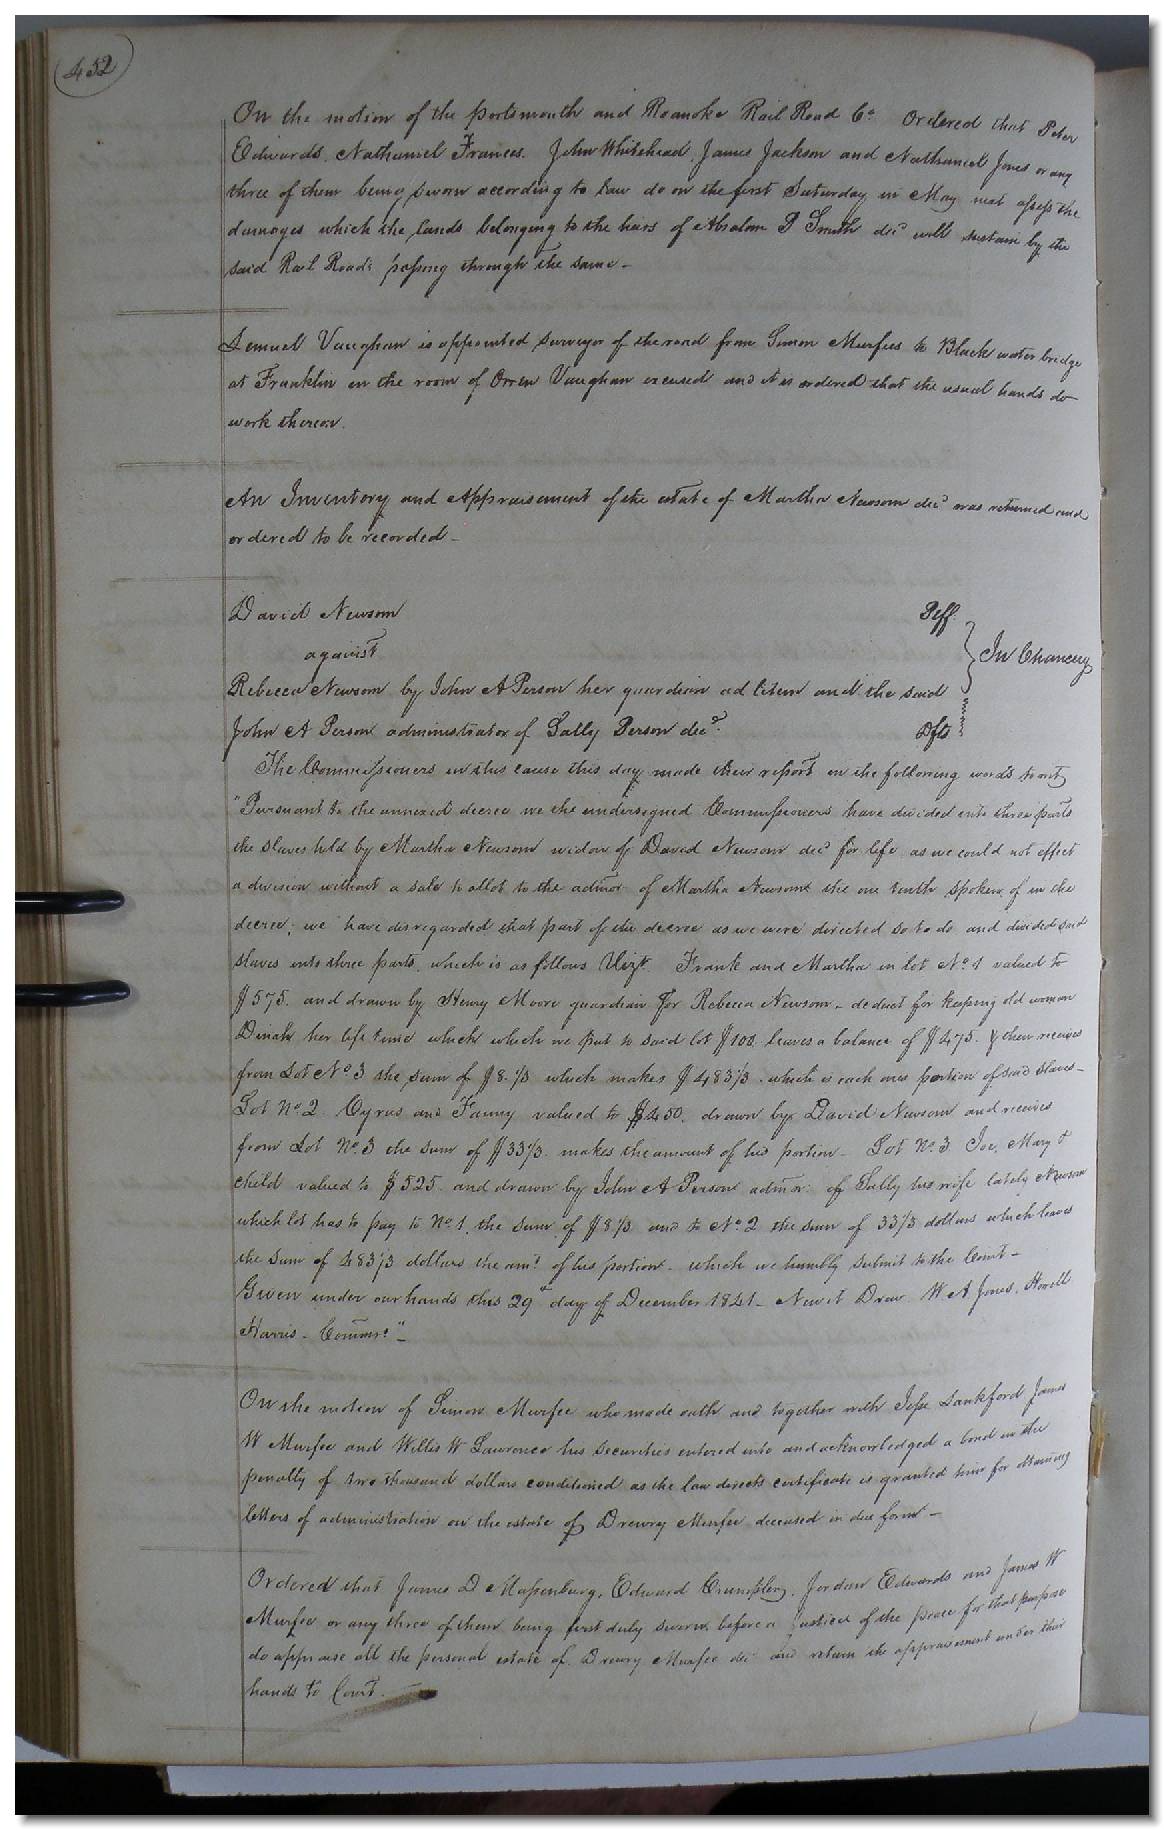 452
On the motion of the portsmouth and Roanoke Rail Road Co. Ordered that Peter
Edwards, Nathaniel Frances. John Whitehead, James Jackson and Nathaniel Jones or any
three of them being sworn according to law do on the first Saturday in May next assess the
damages which the lands belonging to the heirs of Absalom P Smith decd will sustain by the
said Rail Road: passing through the same -
Lemuel Vaughan is appointed surveyor of the road from Simon Murfees to Black water bridge
at Franklin in the room of Orren Vaughan excused and it is ordered that the usual hands do
work thereon.
An Inventory and Appraisement of the estate of Martha Newsom decd was returned and
ordered to be recorded -
David Newsom Plff
against In Chancery
Rebecca Newsom by John A Person her guardian ad litem and the said
John A Person administrator of Sally Person decd. Dfts
The Commissioners in this cause this day made their report in the following words to wit
"Pursuant to the annexed decree we the undersigned Commissioners have divided into three parts
the slaves held by Martha Newsom widow of David Newsom decd for life as we could not effect
a division without a sale to allot to the admor of Martha Newsom the one tenth spoken of in the
decree; we have disregarded that part of the decree as we were directed so to do and divided said
slaves into three parts, which is as follows Vizt. Frank and Martha in lot No 1 valued to
$575. and drawn by Henry Moore guardian for Rebecca Newsom - deduct for keeping old woman
Dinah her life time which which we put to said lot $100. leaves a balance of $475. & then receives
from Lot No 3 the sum of $8.1/3 which makes $483 1/3. which is each ones portion of said slaves -
Lot No 2 Cyrus and Fanny valued to $450. drawn by David Newsom and receives
from Lot No. 3 the sum of $33 1/3. makes the amount of his portion - Lot No 3. Joe, Mary &
child valued to $525. and drawn by John A Person admor: of Sally his wife lately Newsom
which lot has to pay to No 1, the sum of $8 1/3 and to No. 2 the sum of 33 1/3 dollars which leaves
the sum of 483 1/3 dollars the amt. of his portion. which we humbly submit to the Court -
Given under our hands this 29th day of December 1841 - Newit Drew W A Jones, Howell
Harris - Commrs." -
On the motion of Simon Murfee who made oath and together with Jesse Lankford James
W Murfee and Willis W Lawrence his securities entered into and acknowledged a bond in the
penalty of two thousand dollars conditioned as the law directs certificate is granted him for obtaining
letters of administration on the estate of Drewry Murfee deceased in due form -
Ordered that James D Massenburg, Edward Crumpler, Jordan Edwards and James W
Murfee or any three of them being first duly sworn before a justice of the peace for that purpose
do appraise all the personal estate of Drewry Murfee decd and return the appraisement under their
hands to Court. -